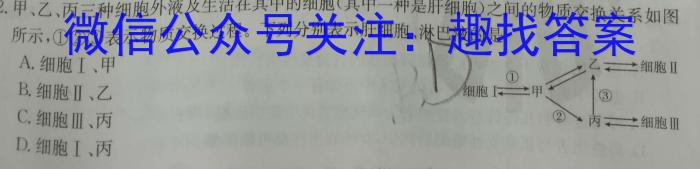 2.甲、乙、丙三种细胞外液及生活在其中的细胞(其中一种是肝细胞)之间的物质交换关系如图
所示,①
微信公众号关注：趣找答案
A.细胞Ⅰ、甲
B.细胞Ⅱ、乙
C.细胞Ⅲ、丙
D.细胞Ⅰ、丙
乙 细胞Ⅱ
细胞Ⅰ ① 甲 ③
② 丙 细胞Ⅲ